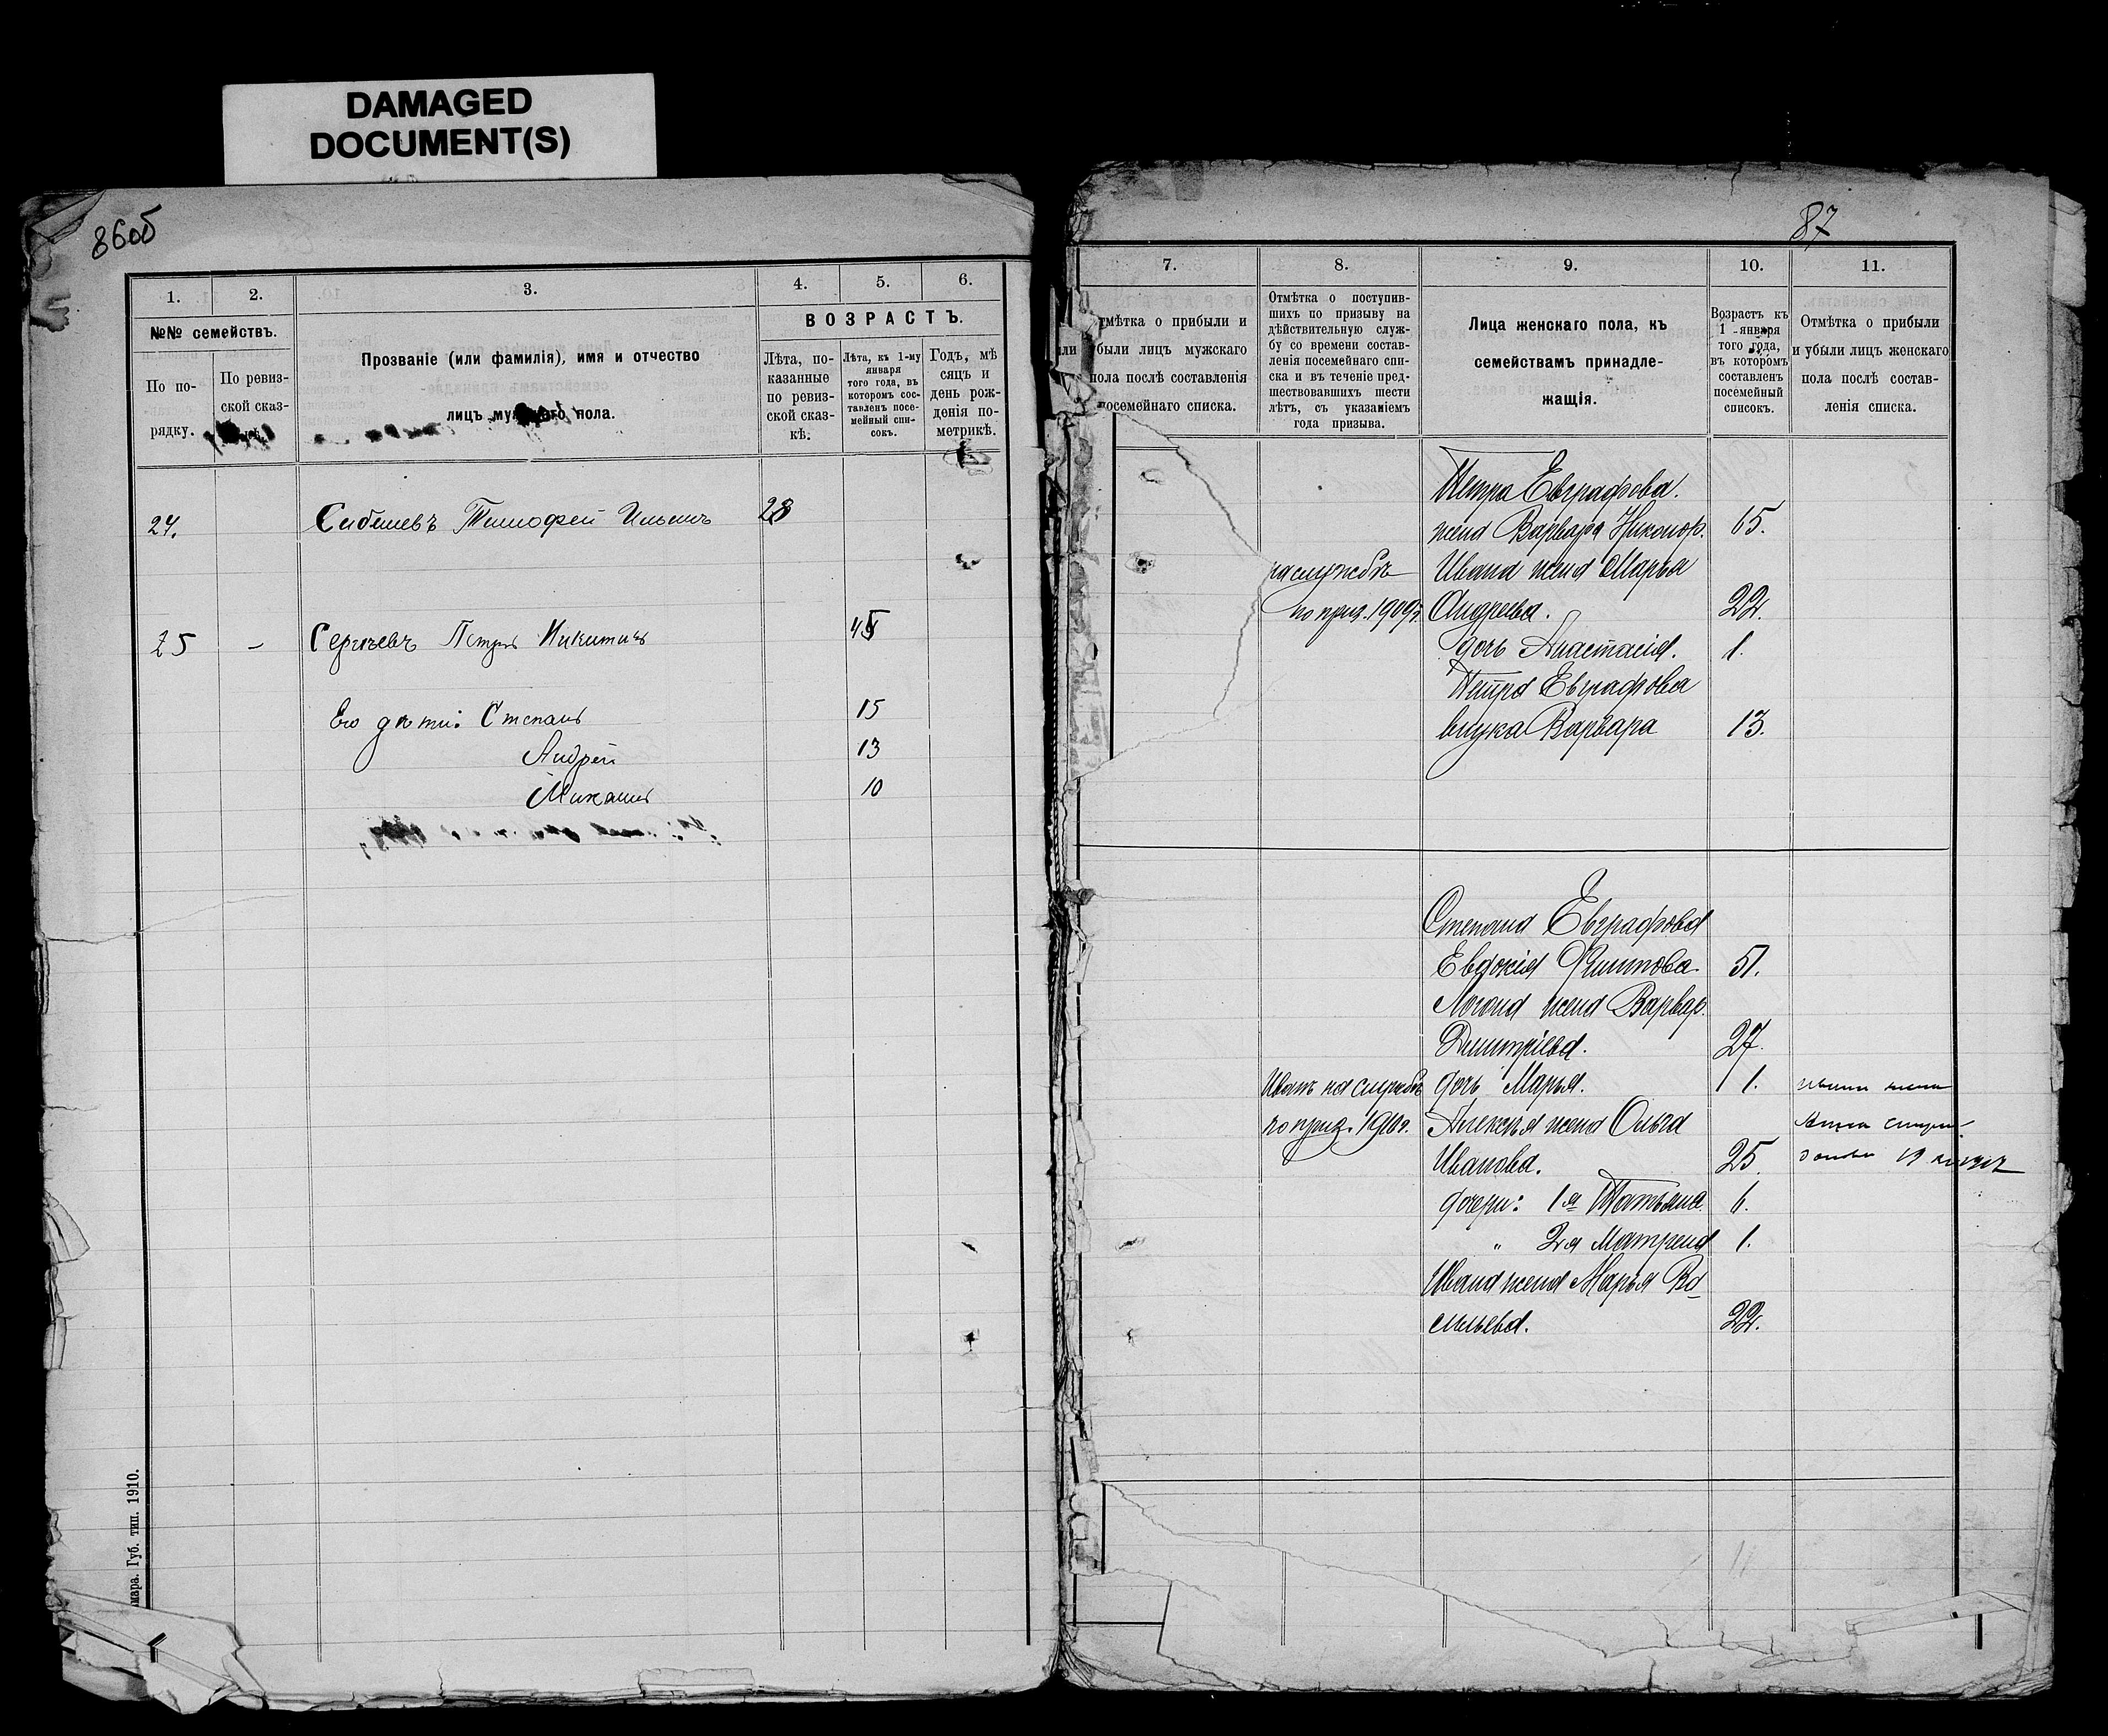 DAMAGED
DOCUMENT(S)
86об
1.
2.
3.
4.
5.
6.
№№ семействъ.
По по-
рядку.
По ревиз-
ской сказ-
Прозваніе (или фамилія), имя и отчество
лицъ мужского пола.
ВОЗРАСТЪ.
Лѣта, по-
казанные
по ревиз-
ской сказ-
кѣ.
Лѣта, къ 1-му
января
того года, въ
которомъ сос-
тавленъ посе-
мейный спи-
сокъ.
Годъ, мѣ
сяцъ и
день рож-
денія по-
метрикѣ.
24. Тимофей Ильинъ 28
25 — Сергѣевъ Петръ Никитинъ 45
Его дѣти: Степанъ 15
Андрей 13
10
мара. Губ. тип. 1910.
87
7.
8.
9.
10.
11.
тмѣтка о прибыли и
были лицъ мужскаго
пола послѣ составленія
посемейнаго списка.
Отмѣтка о поступив-
шихъ по призыву на
дѣйствительную служ-
бу со времени состав-
ленія посемейнаго спи-
ска и въ теченіе пред-
шествовавшихъ шести
лѣтъ, съ указаніемъ
года призыва.
Лица женскаго пола, къ
семействамъ принадле-
жащія.
Возрастъ къ
1 января
того года,
въ которомъ
составленъ
посемейный
списокъ.
Отмѣтка о прибыли
и убыли лицъ женскаго
пола послѣ состав-
ленія списка.
Петра Евграфова.
жена Варвара Никонор. 65.
на службѣ Ивана жена Марья
по приз. 1909г. Андреева. 22.
дочь Анастасія. 1.
Петра Евграфова
внука Варвара 13.
Степана Евграфова
Евдокія Филипова 51.
жена Варвар.
Дмитріева. 27.
Иванъ на службѣ дочь Марья. 1.
по приз. 1910г. Алексѣя жена Ольга
Иванова. 25.
дочери: 1я Татьяна 6.
" 2я Матрена 1.
Ивана жена Марья Ва-
сильева. 22.